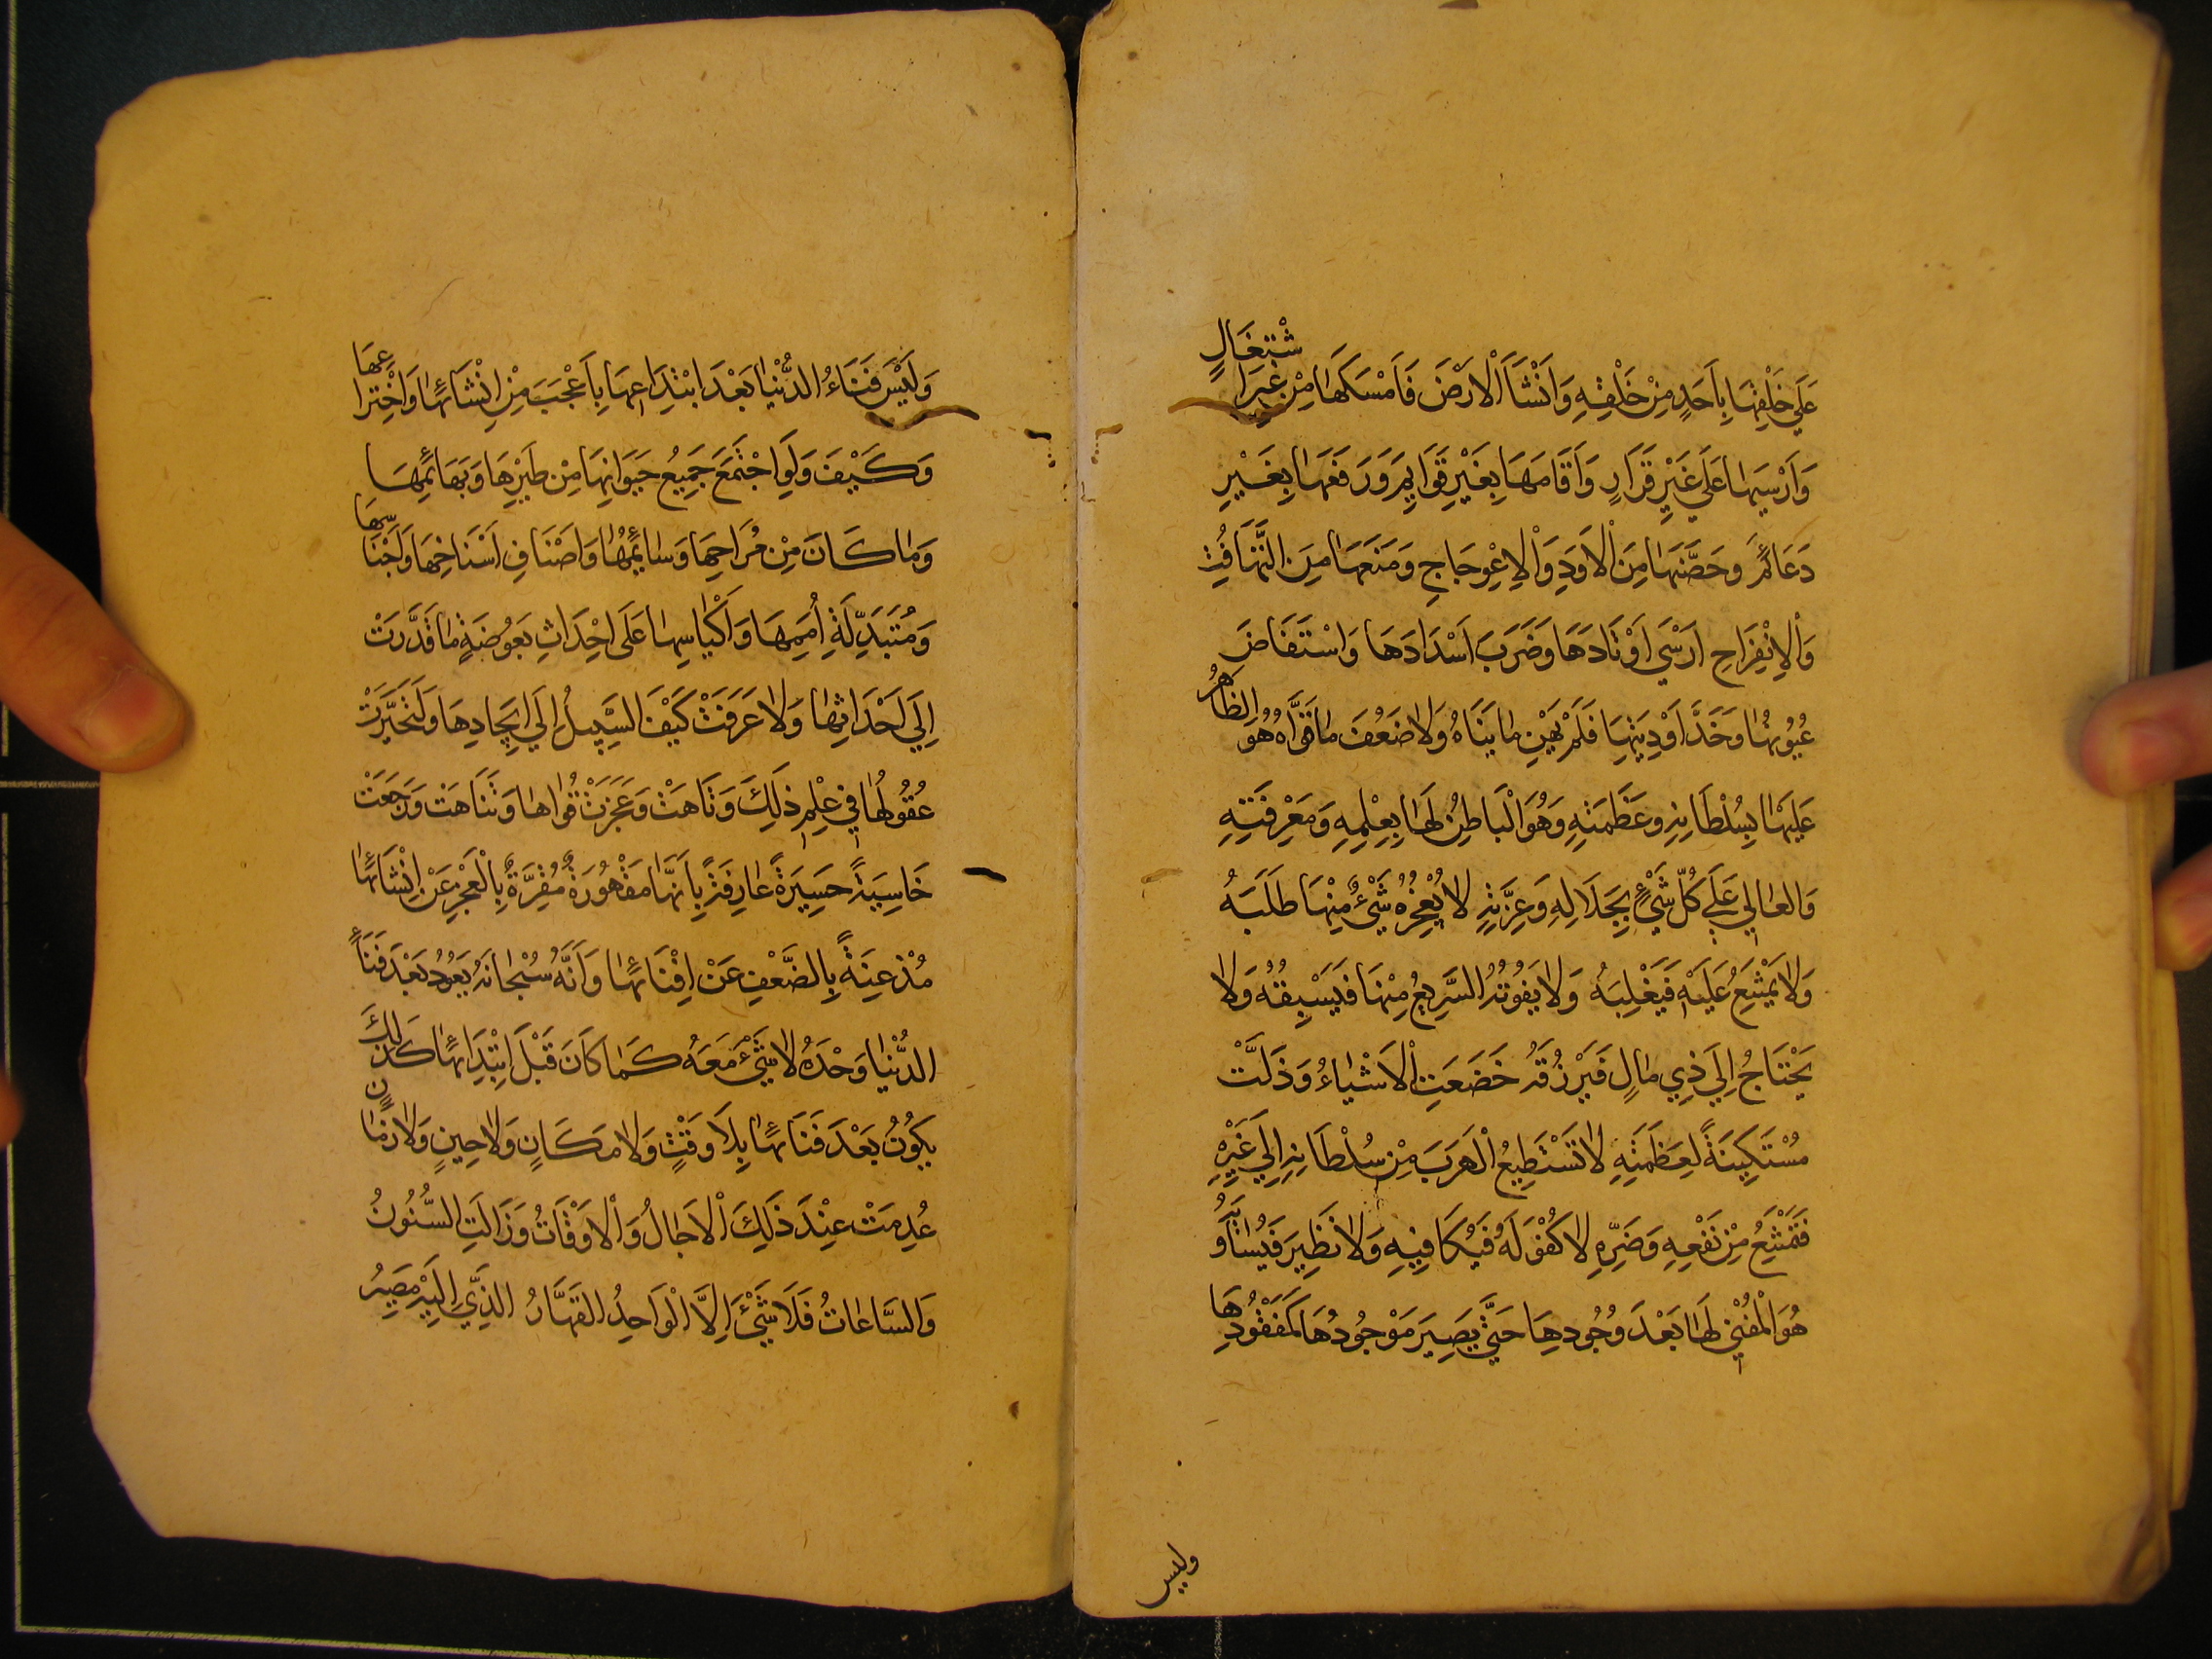 عَلَي خَلْقِهَا بِاَحَدٍ مِنْ خَلْقِهِ وَاَنْشَاَ الْاَرْضَ فَاَمْسَكَهَا مِنْ غَيْرِ اشْتِغَالٍ
وَاَرْسٰيهَا عَلَي غَيْرِ قَرَارٍ وَاَقَامَهَا بِغَيْرِ قَوَايِمَ وَرَفَعَهَا بِغَيْرِ
دَعَائِمَ وَحَصَّنَهَا مِنَ الْاَوَدِ وَالْاِعْوِجَاجِ وَمَنَعَهَا مِنَ التَّهَافُتِ
وَالْاِنْفِرَاجِ اَرْسَي اَوْتَادَهَا وَضَرَبَ اَسْدَادَهَا وَاسْتَفَاضَ
عُيُونُهَا وَخَدَّ اَوْدِيَتِهَا فَلَمْ يَهِنْ مَا بَنَاهُ وَلَا ضَعُفَ مَا قَوَّاهُ هُوَ الظَّاهِرُ
عَلَيْهَا بِسُلْطَانِهِ وَعَظَمَتِهِ وَهُوَ الْبَاطِنُ لَهَا بِعِلْمِهِ وَمَعْرِفَتِهِ
وَالعَالِي عَلَي كُلِّ شَيْءٍ بِجَلَالِهِ وَعِزَّتِهِ لَا يُعْجِزُهُ شَيْءٌ مِنْهَا طَلَبَهُ
وَلَا يَمْتَنِعُ عَلَيْهِ فَيَغْلِبَهُ وَلَا يَفُوتُهُ السَّرِيعُ مِنْهَا فَيَسْبِقُهُ وَلَا
يَحْتَاجُ اِلَي ذِي مَالٍ فَيَرْزُقَهُ خَضَعَتِ الْاَشْيَاءُ وَذَلَّتْ
مُسْتَكِينَةً لِعَظَمَتِهِ لَا تَسْتَطِيعُ الْهَرَبَ مِنْ سُلْطَانِهِ اِلَي غَيْرِهِ
فَتَمْتَنِعُ مِنْ نَفْعِهِ وَضَرِّهِ لَا كُفْوَ لَهُ فَيُكَافِيهِ وَلَا نَظِيرَ فَيُسَاوِيَهُ
هُوَ الْمُفْنِي لَهَا بَعْدَ وُجُودِهَا حَتّٰي يَصِيرَ مَوْجُودُهَا كَمَفْقُودِهَا
وليس
وَلَيْسَ فَنَاءُ الدُّنْيَا بَعْدَ ابْتِدَاعِهَا بِاَعْجَبَ مِنْ اِنْشَائِهَا وَاخْتِرَاعِهَا
وَكَيْفَ وَلَوِ اجْتَمَعَ جَمِيعُ حَيَوَانِهَا مِنْ طَيْرِهَا وَبَهَائِمِهَا
وَمَا كَانَ مِنْ مُرَاحِهَا وَسَائِمِهَا وَاَصْنَافِ اَسْنَاخِهَا وَاَجْنَاسِهَا
وَمُتَبَدِّلَةِ اُمَمِهَا وَاَكْيَاسِهَا عَلَى اِحْدَاثِ بَعُوضَةٍ مَا قَدَّرَتْ
اِلَي اَحْدَاثِهَا وَلَا عَرَفَتْ كَيْفَ السَّبِيلُ اِلَي اِيجَادِهَا وَلَتَحَيَّرَتْ
عُقُولُهَا فِي عِلْمِ ذٰلِكَ وَتَاهَتْ وَعَجَزَتْ قُوَاهَا وَتَنَاهَتْ وَرَجَعَتْ
خَاسِيَةً حَسِيرَةً عَارِفَةً بِاَنَّهَا مَقْهُورَةٌ مُقِرَّةٌ بِالْعَجْزِ عَنْ اِنْشَائِهَا
مُذْعِنَةً بِالضَّعْفِ عَنْ اِفْنَائِهَا وَاَنَّهُ سُبْحَانَهُ يَعُودُ بَعْدَ فَنَاءِ
الدُّنْيَا وَحْدَهُ لَا شَيْءَ مَعَهُ كَمَا كَانَ قَبْلَ ابْتِدَائِهَا كَذٰلِكَ
يَكُونُ بَعْدَ فَنَائِهَا بِلَا وَقْتٍ وَلَا مَكَانٍ وَلَا حِينٍ وَلَا زَمَانٍ
عُدِمَتْ عِنْدَ ذَلِكَ الْاَجَالُ وَالْاَوْقَاتُ وَزَالَتِ السُّنُونُ
وَالسَّاعَاتُ فَلَا شَيْءَ اِلَّا الْوَاحِدُ القَهَّارُ الَّذِي اِلَيْهِ مَصِيرُ